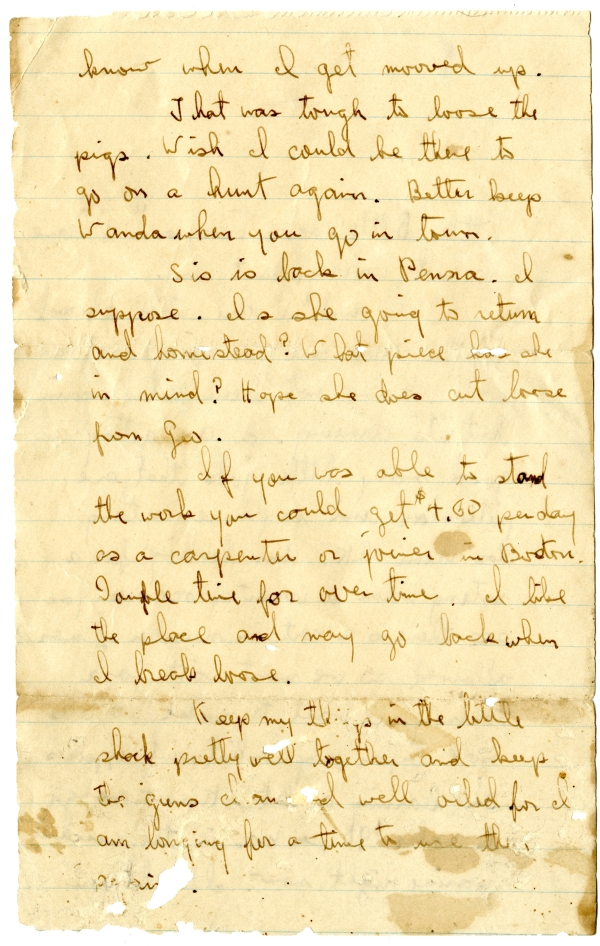 know when I get mooved up.
That was tough to loose the
pigs. Wish I could be there to
go on a hunt again. Better keep
Wanda when you go in town.
Sis is back in Penna. I
suppose. Is she going to return
and homistead? What piece has she
in mind? Hope she does cut loose
from Geo.
If you was able to stand
the work you could get $4.60 per day
as a carpenter or joiner in Boston.
Double time for over time. I like
the place and may go back when
I break loose.
Keep my things in the little
shack pretty well together and keep
the guns and well oiled for I
am longing for a time to use